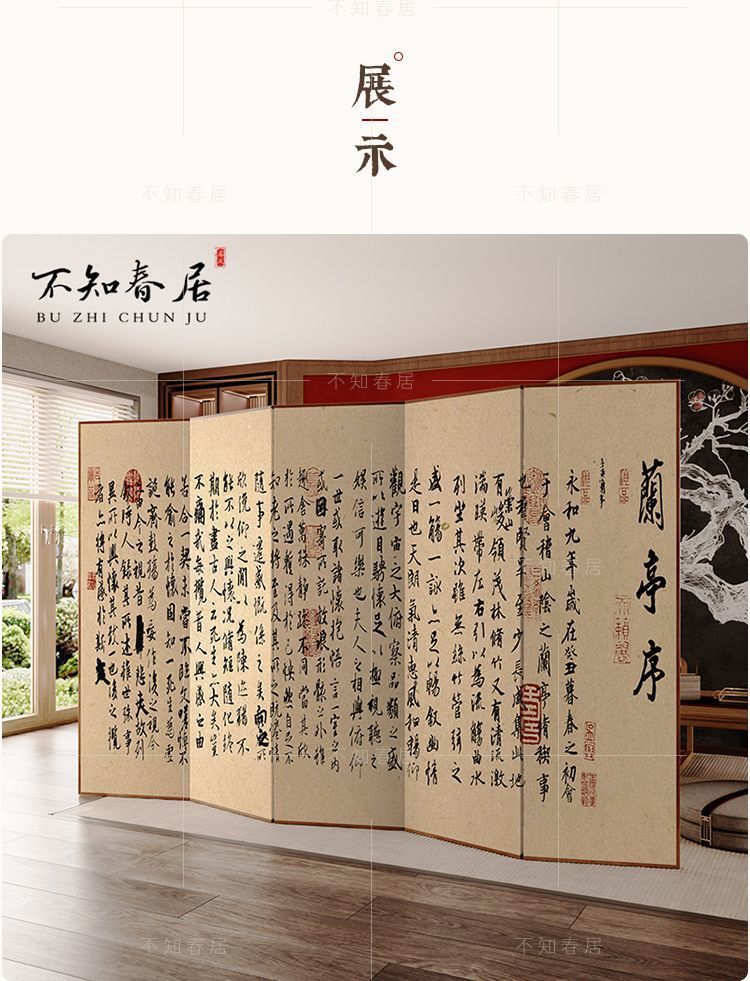 不知春居
展
示
不知春居
不知春居
不知春居
BU ZHI CHUN JU
不知春居
蘭亭序
永和九年歲在癸丑暮春之初會
于會稽山陰之蘭亭脩稧事
也羣賢畢至少長咸集此地
有崇山峻領茂林脩竹又有清流激
湍暎帶左右引以為流觴曲水
列坐其次雖無絲竹管弦之
盛一觴一詠亦足以暢敘幽情
是日也天朗氣清惠風和暢仰
觀宇宙之大俯察品類之盛
所以遊目騁懷足以極視聽之
娛信可樂也夫人之相與俯仰
一世或取諸懷抱悟言一室之內
或因寄所託放浪形骸之外雖
趣舍萬殊靜躁不同當其欣
於所遇暫得於己快然自足不
知老之將至及其所之既惓情
隨事遷感慨係之矣向之所
欣俛仰之間以為陳迹猶不
能不以之興懷況脩短隨化終
期於盡古人云死生亦大矣豈
不痛哉每攬昔人興感之由
若合一契未嘗不臨文嗟悼不
能喻之於懷固知一死生為虛
誕齊彭殤為妄作後之視今
亦由今之視昔悲夫故列
敘時人錄其所述雖世殊事
異所以興懷其致一也後之攬
者亦將有感於斯文
不知春居
不知春居
不知春居
不知春居
不知春居